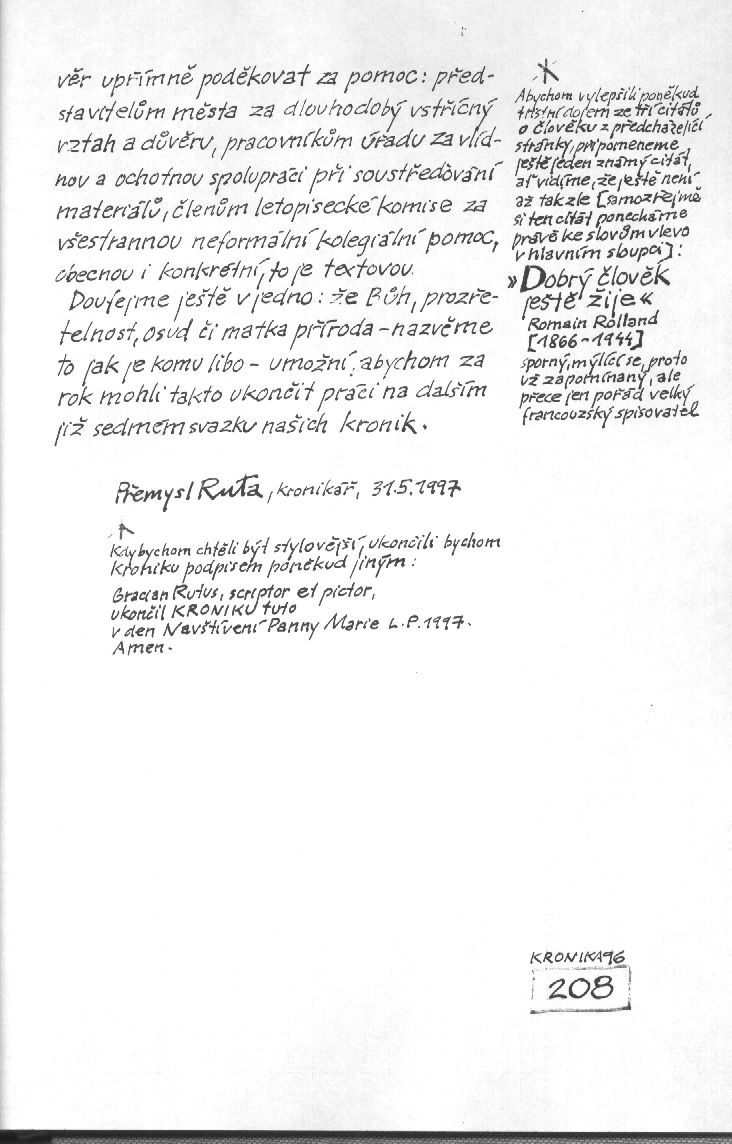 věr upřímně poděkovat za pomoc: před-
stavitelům města za dlouhodobý vstřícný
vztah a důvěru, pracovníkům úřadu za vlíd-
nou a ochotnou spolupráci při soustřeďování
materiálů, členům letopisecké komise za
všestrannou neformální kolegiální pomoc,
obecnou i konkrétní, to je textovou.
Doufejme ještě v jedno: že Bůh, prozře-
telnost, osud či matka příroda - nazvěme
to jak je komu libo - umožní, abychom za
rok mohli takto ukončit práci na dalším
již sedmém svazku našich kronik.
Přemysl Ruta, kronikář, 31.5.1997
Kdybychom chtěli být stylovější, ukončili bychom
kroniku podpisem poněkud jiným:
Gracian Rutus, scriptor et pictor,
ukončil KRONIKU tuto
v den Navštívení Panny Marie L.P.1997.
Amen.
Abychom vylepšili poněkud
tristní dojem ze tří citátů
o člověku z předcházející
stránky, připomeneme
ještě jeden známý citát,
ať vidíme, že ještě není
až tak zle [samozřejmě
si ten citát ponecháme
právě ke slovům vlevo
v hlavním sloupci]:
»Dobrý člověk
ještě žije«
Romain Rolland
[1866-1944]
sporný, mýlící se, proto
už zapomínaný, ale
přece jen pořád velký
francouzský spisovatel
KRONIKA96
208